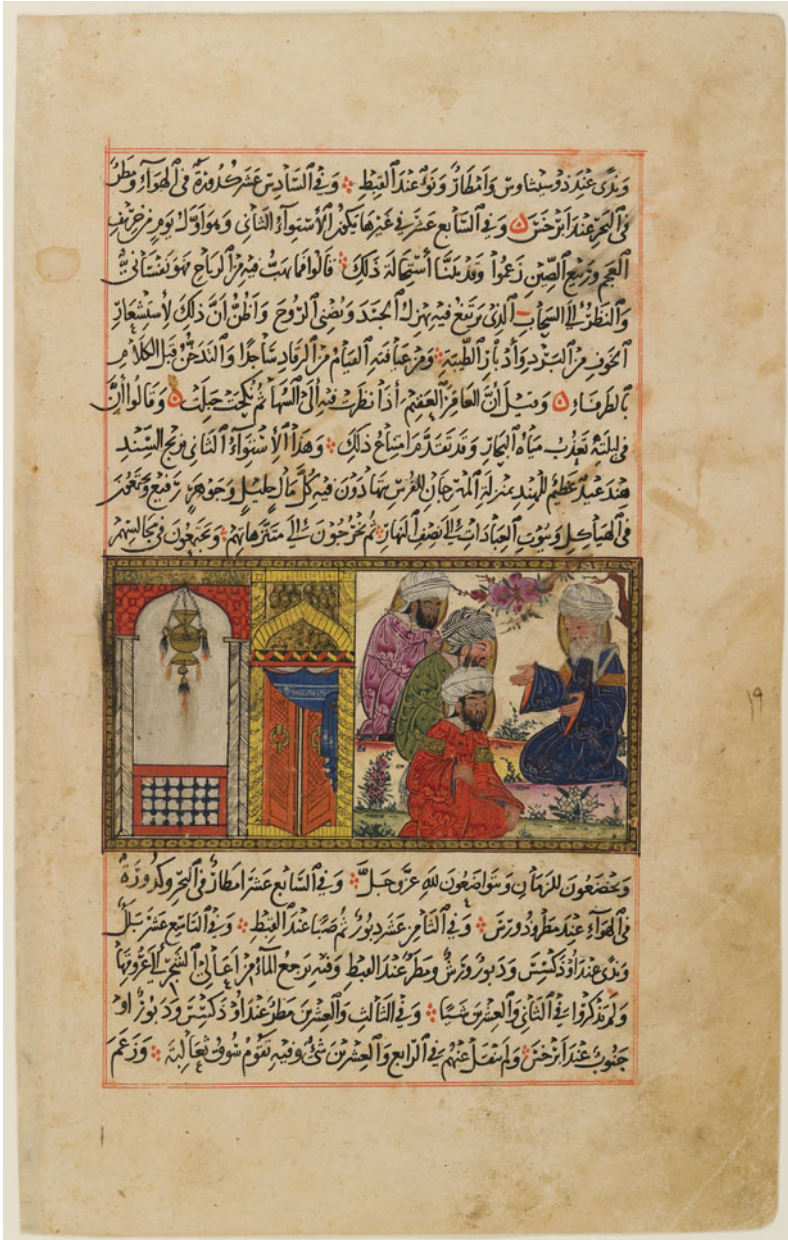 وَنَدًى عِنْدَ ذوسيثاوس وَاَمْطَارٌ وَنَوْءٌ عِنْدَ القِبْطِ ۞ وَفِي السَّادِسَ عَشَرَ كُدُورَةٌ فِى الهَوَآءِ وَمَطَرٌ
فِى البَحْرِ عِنْدَ اَبَرْخسَ ۞ وَفِي السَّابعَ عَشَرَ يَكُونُ الاِسْتِوَآءُ الثَّانِى وَهوَ اَوَّلُ يَومٍ مِنْ خَرِيفِ
العَجَمِ وَرَبِيعِ الصِّينِ زَعَمُوا وَقَد بَيَّنَّا اسْتِحَالَةَ ذَلِكَ ۞ قَالُوا فَمَا يَهبُّ فِيهِ مِنَ الرِّيَاحِ فَهوَ نَفْسَانِىٌّ
وَالنَّظَرُ اِلَى السَّحَابِ الَّذِى يَرتَفعُ فِيهِ يُهزِلُ الجَسَدَ وَيُضْنِى الرُّوحَ وَاَظُنُّ اَنَّ ذَلِكَ لِاسْتِشْعَارِ
الخَوفِ مِنَ البَرْدِ وَاَدْبَارِ الطِّيبَةِ ۞ وَمِنْ عَيَافَتِهِ القِيَامُ مِنَ الرقَادِ سَاجِدًا وَالتَّدَخّنُ قَبلَ الكَلَامِ
بِالطرفَاءِ ۞ وَقِيلَ اَنَّ العَاقِرَ العَقِيمَ اِذَا نظرَت فِيهِ اِلَى السُّهَا ثُمَّ نُكِحَتْ حَبِلَتْ ۞ وَقَالُوا اَنَّ
فِى لَيْلَتِهِ تَعْذُبُ مِيَاهُ البِحَارِ وَقَد تَقَدَّمَ امْتِنَاعُ ذَلِكَ ۞ وَهَذَا الاِسْتِوَآءُ الثَّانِى بِزيجِ السِّنْدِ
هِنْدَ عِيدٌ عَظِيمٌ لِلهِنْدِ بِمَنْزِلَةِ المِهْرِجَانِ لِلفُرْسِ يَتَهَادَونَ فِيهِ كُلَّ مَالٍ جَلِيلٍ وَجَوْهَرٍ رَفِيعٍ وَيَجتَمعُونَ
فِى الهَيَاكِلِ وَبُيُوتِ العِبَادَاتِ اِلَى نِصْفِ النَّهَارِ ثُمَّ يَخْرُجُونَ اِلَى مُتَنَزَّهَاتِهِم ۞ وَيَجتَمِعُونَ فِى مَجَالِسِهِمْ
وَيَخْضَعُونَ لِلزَّمَانِ وَيَتَوَاضَعُونَ لِلّهِ عَزَّ وَجَلَّ ۞ وَفِي السَّابعَ عَشَرَ اَمْطَارٌ فِى البَحْرِ وَكدُورَةٌ
فِى الهَوَآءِ عِنْدَ مطرودورس ۞ وَفِي الثَّامِنَ عَشَرَ دَبُورٌ ثُمَّ صَبًا عِنْدَ القِبْطِ ۞ وَفِي التَّاسِعَ عَشَرَ بَلَلٌ
وَنَدًى عِنْدَ اَوْذكسس وَدَبُورٌ وَرَشٌّ وَمَطَرٌ عِنْدَ القبْطِ وَفِيهِ يَرجعُ المَآءُ مِنْ اَعَالِى الشَّجَرِ اِلَى عُرُوقِهَا
وَلَم يَذْكُرُوا فِي الثَّانِى وَالعِشْرِينَ شَيْئًا ۞ وَفِي الثَّالِثِ وَالعِشْرِينَ مَطَرٌ عِنْدَ اَوْذكسس وَدَبُورٌ اَوْ
جَنُوبٌ عِنْدَ اَبَرْخسَ ۞ وَلَم ينقَلْ عَنْهُمْ فِي الرَّابِعِ وَالعِشْرِينَ شَىْءٌ وَفِيهِ تَقُومُ سُوقُ ثعَالِبَةَ ۞ وَزَعَمَ
١٩